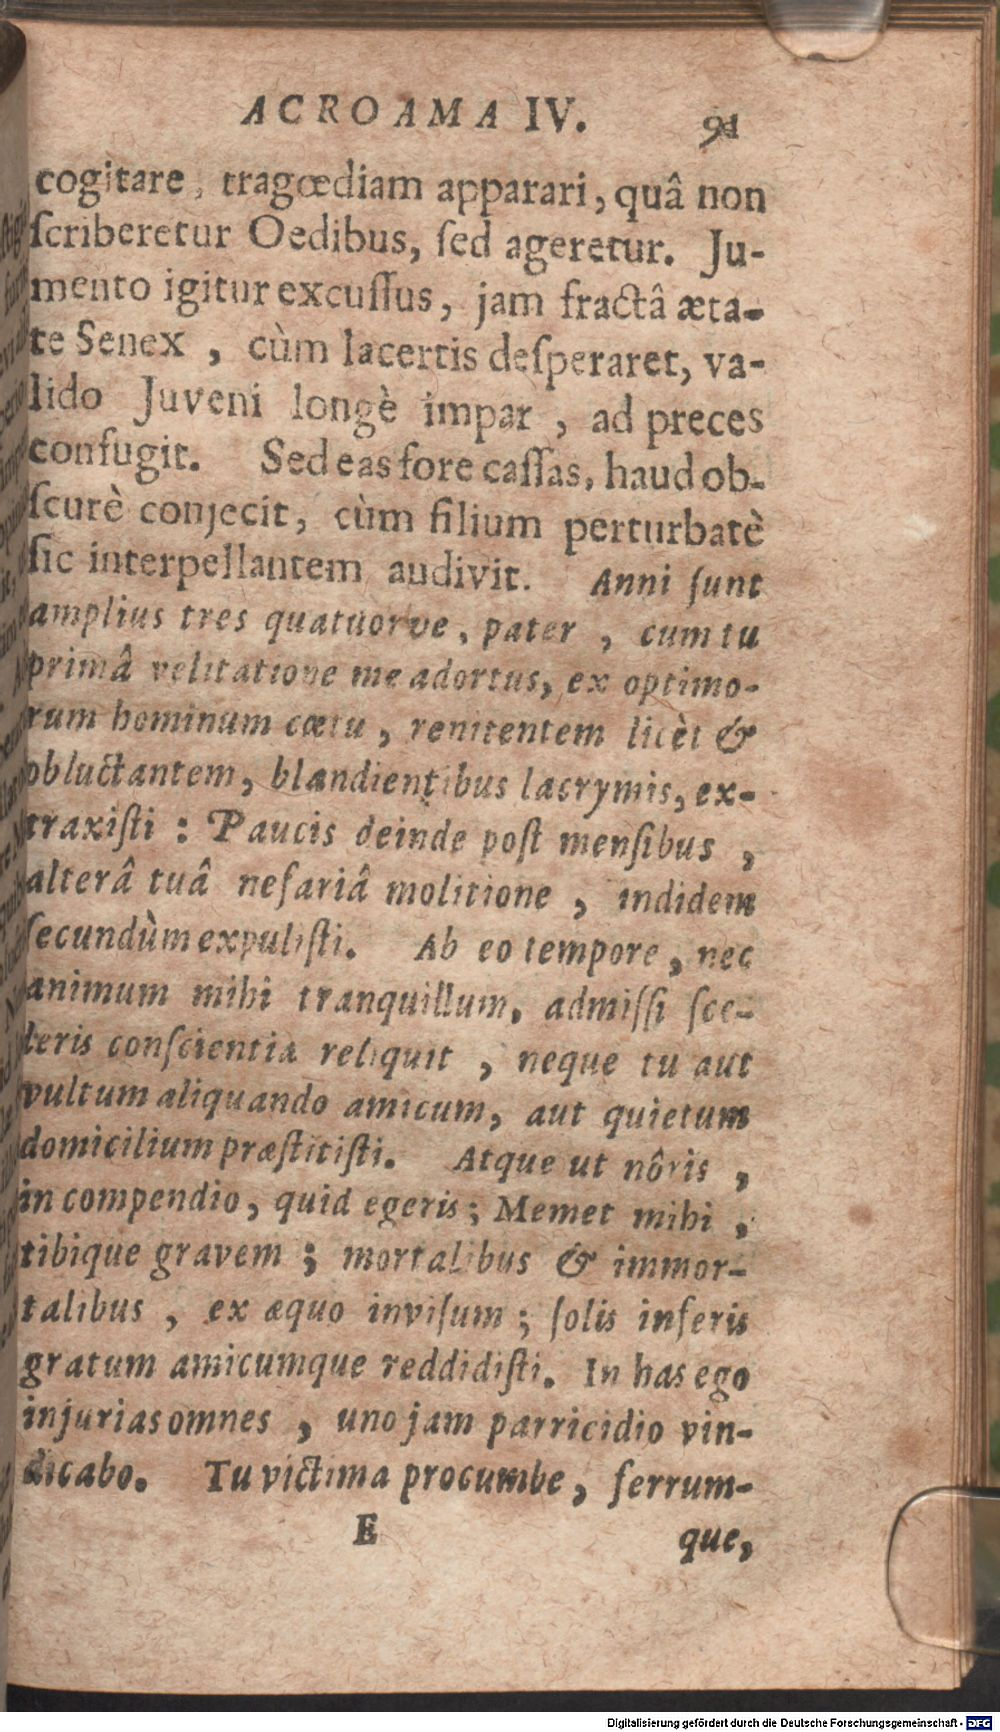 ACROAMA IV. 91
cogitare, tragœdiam apparari, quâ non
ſcriberetur Oedibus, ſed ageretur. Ju-
mento igitur excuſſus, jam fractâ æta-
te Senex, cùm lacertis deſperaret, va-
lido Juveni longè impar, ad preces
confugit. Sed eas fore caſſas, haud ob-
ſcurè conjecit, cùm filium perturbatè
ſic interpellantem audivit. Anni ſunt
amplius tres quatuorve, pater, cum tu
primâ velitatione me adortus, ex optimo-
rum hominum cœtu, renitentem licèt &
obluctantem, blandientibus lacrymis, ex-
traxiſti: Paucis deinde poſt menſibus,
alterâ tuâ nefariâ molitione, indidem
ſecundùm expuliſti. Ab eo tempore, nec
animum mihi tranquillum, admiſſi ſce-
leris conſcientia reliquit, neque tu aut
vultum aliquando amicum, aut quietum
domicilium præſtitiſti. Atque ut nôris,
in compendio, quid egeris; Memet mihi,
tibique gravem; mortalibus & immor-
talibus, ex æquo inviſum; ſolis inferis
gratum amicumque reddidiſti. In has ego
injurias omnes, uno jam parricidio vin-
dicabo. Tu victima procumbe, ferrum-
E que,
Digitalisierung gefördert durch die Deutsche Forschungsgemeinschaft - DFG